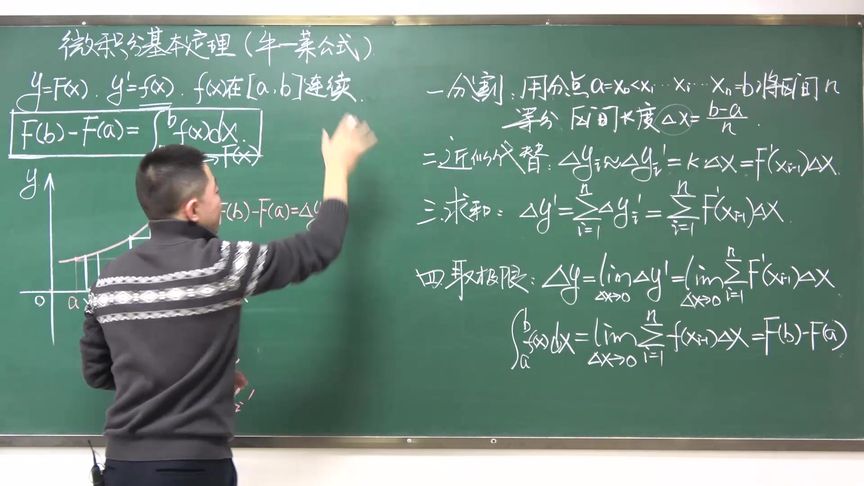 微积分基本定理(牛一莱公式)
y=F(x). y'=f(x). f(x)在[a,b]连续.
F(b)-F(a)=∫ₐᵇf(x)dx.
⇒F(x)
y
F(b)-F(a)=Δy
0 a
一.分割:用分点a=x₀<x₁…xᵢ…xₙ=b将区间n
等分 区间长度Δx=(b-a)/n.
二.近似代替:Δyᵢ≈Δyᵢ'=kΔx=F'(xᵢ₋₁)Δx.
三.求和:Δy'=∑ᵢ₌₁ⁿΔyᵢ'=∑ᵢ₌₁ⁿF'(xᵢ₋₁)Δx.
四.取极限:Δy=lim_{Δx→0}Δy'=lim_{Δx→0}∑ᵢ₌₁ⁿF'(xᵢ₋₁)Δx
∫ₐᵇf(x)dx=lim_{Δx→0}∑ᵢ₌₁ⁿf(xᵢ₋₁)Δx=F(b)-F(a)